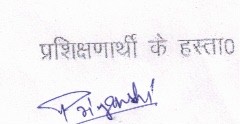 प्रशिक्षणार्थी के हस्ता०
Priyanshi